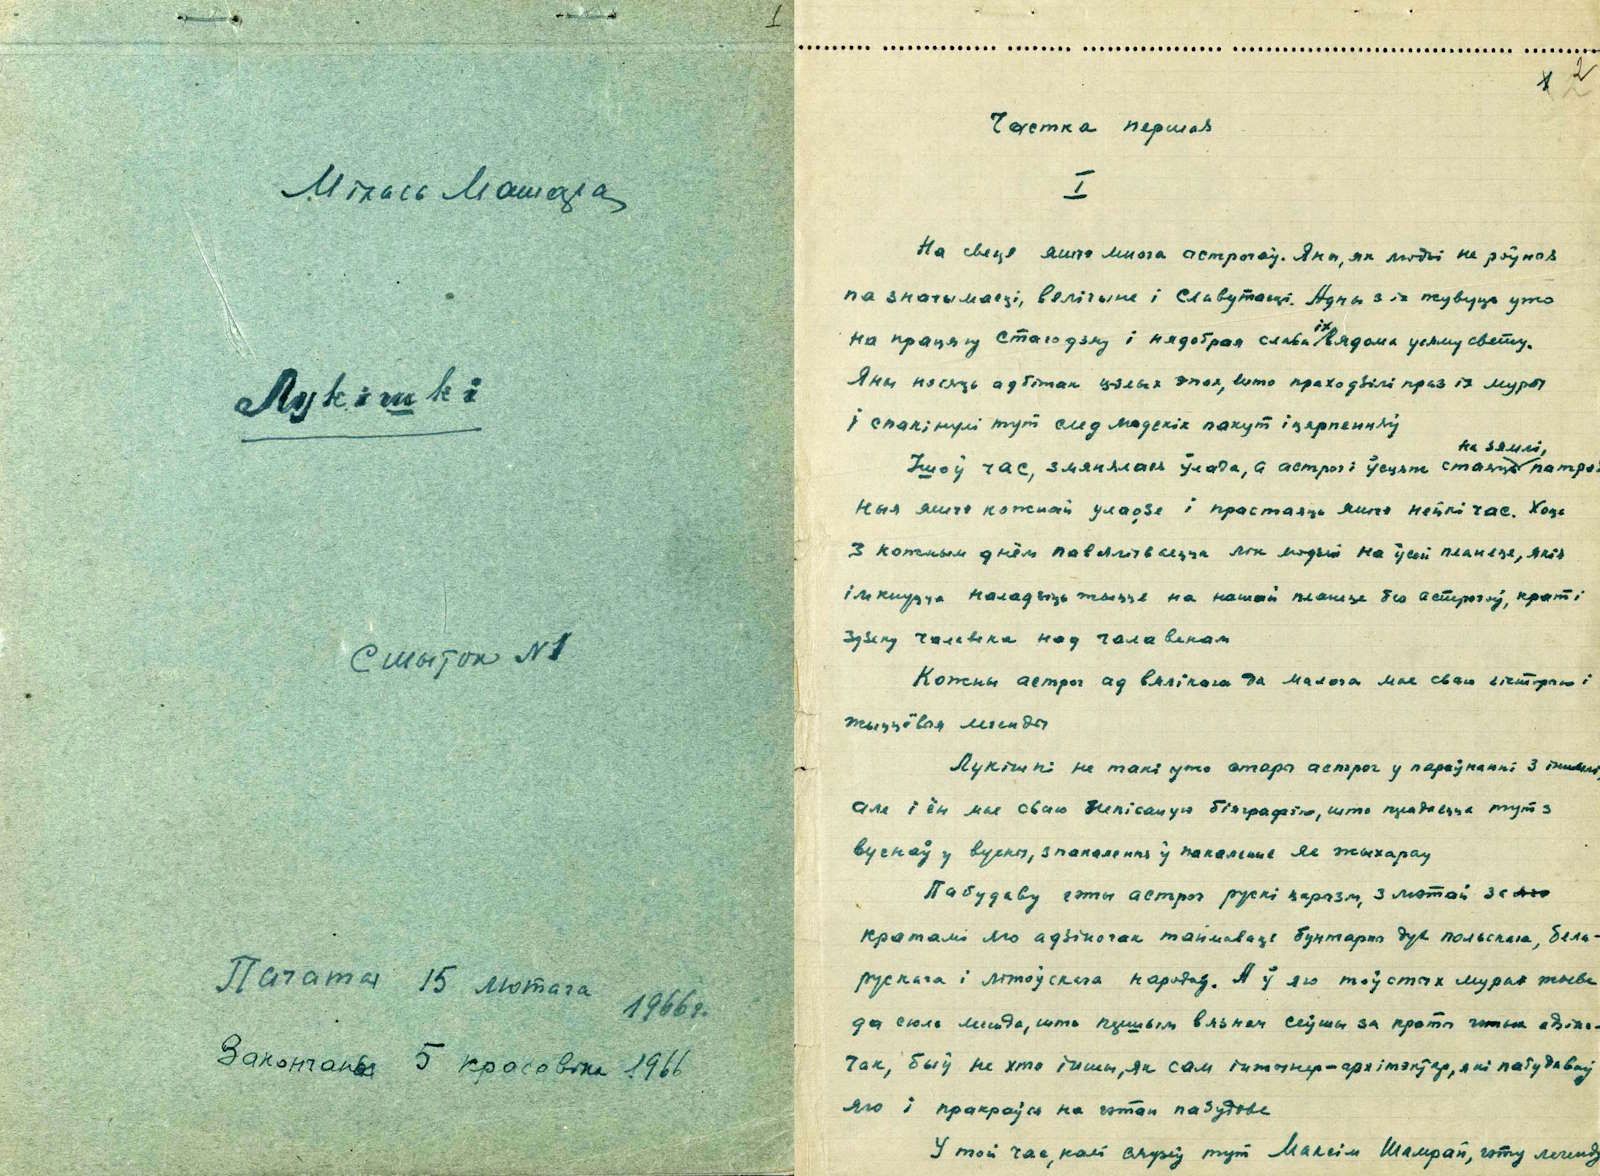 1
Мікась Машара
Лукішкі
Сшыток N1
Пачаты 15 лютага
1966 г.
Закончаны 5 красавіка 1966
2
Частка першая
I
На свеце яшчэ многа астрогаў. Яны, як людзі не роўныя
па значымасці, велічыне і славутасці. Адны з іх жывуць ужо
на працягу стагодзяў і нядобрая слава іх вядома усяму свету.
Яны носяць адбітак цэлых эпох, што праходзілі праз іх муры
і спакінулі тут след людскіх пакут і цярпенняў
на зямлі,
Ішоў час, змянялася ўлада, а астрогі ўсцяж стаяць патрэб
ныя яшчэ кожнай уладзе і прастаяць яшчэ нейкі час. Хоць
з кожным днём павялічваецца лік людзей на ўсей планеце, якія
імкнуцца наладзіць жыццё на нашай планеце без астрогаў, крат і
здзеку чалавека над чалавекам
Кожны астрог ад вялікага да малога мае сваю гісторыю і
жыццёвыя легенды
Лукішкі не такі ужо стары астрог у параўнанні з іншымі,
але і ён мае сваю непісаную біяграфію, што перадаецца тут з
вуснаў у вусны, з пакалення ў пакаленне яе жыхарау
Пабудаваў гэты астрог рускі царызм, з мэтай за яго
кратамі яго адзіночак таймаваце бунтарны дух польскага, бела-
рускага і літоўскага народаў. А ў яго тоўстых мурах жыве
да сюль легенда, што першым вязнем сеўшы за краты гэтых адзіно-
чак, быў не хто іншы, як сам інжынер-архітэктар, які пабудаваў
яго і пракраўся на гэтай пабудове
У той час, калі сядзеў тут Максім Шамрай, гэту легенду